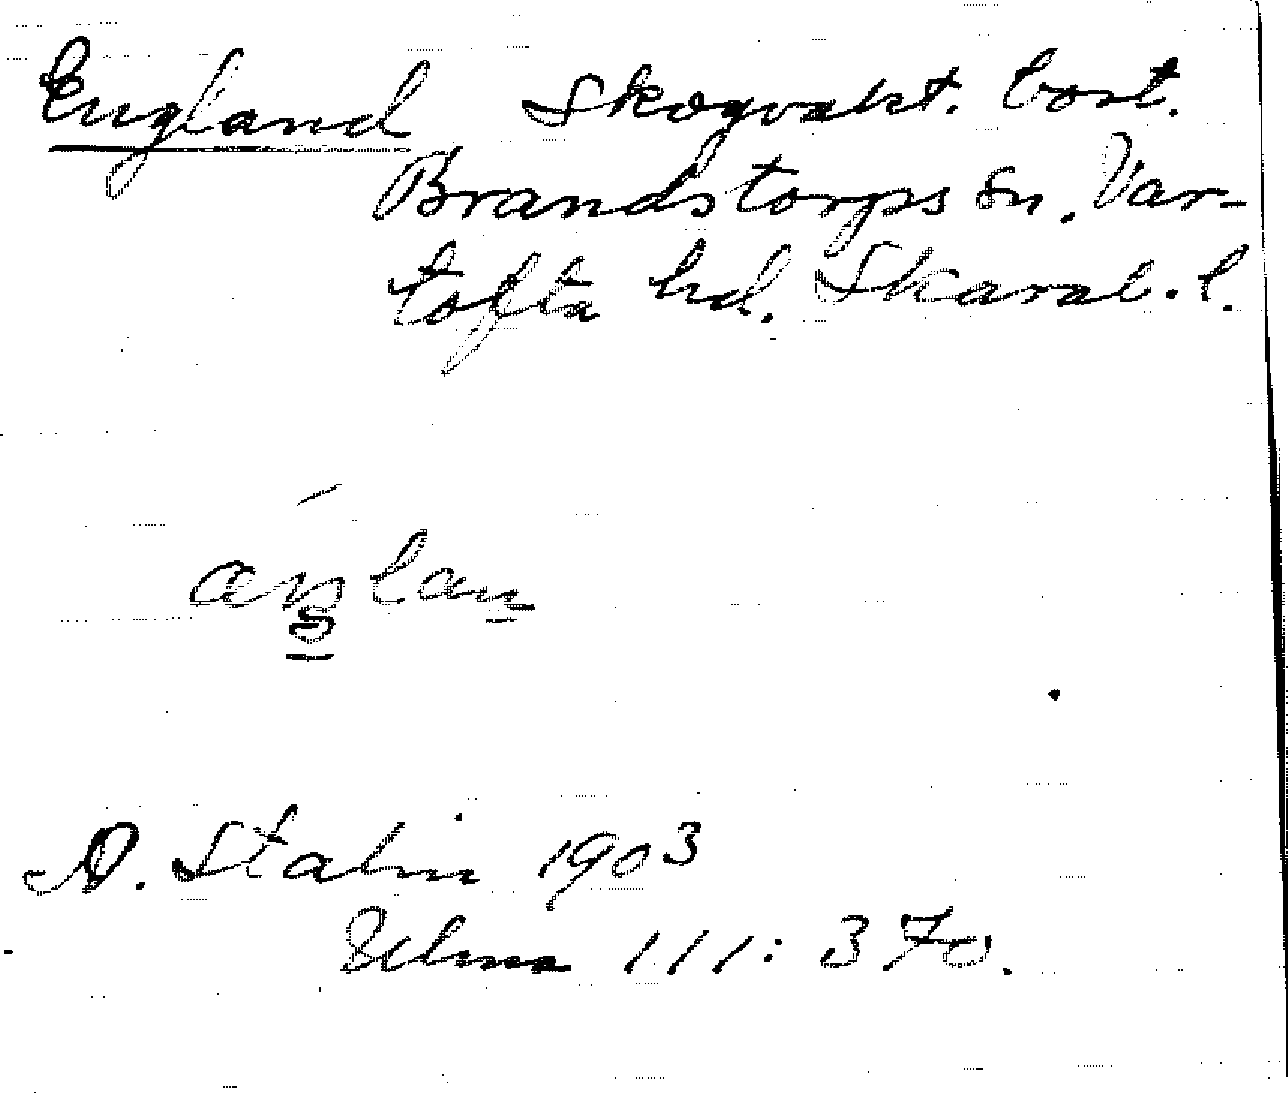 England Skogvakt. bost.
Brandstorps sn. Var-
tofta hd. Skarab. l.
æŋlan
A. Stalin 1903
Uuma 111: 370.